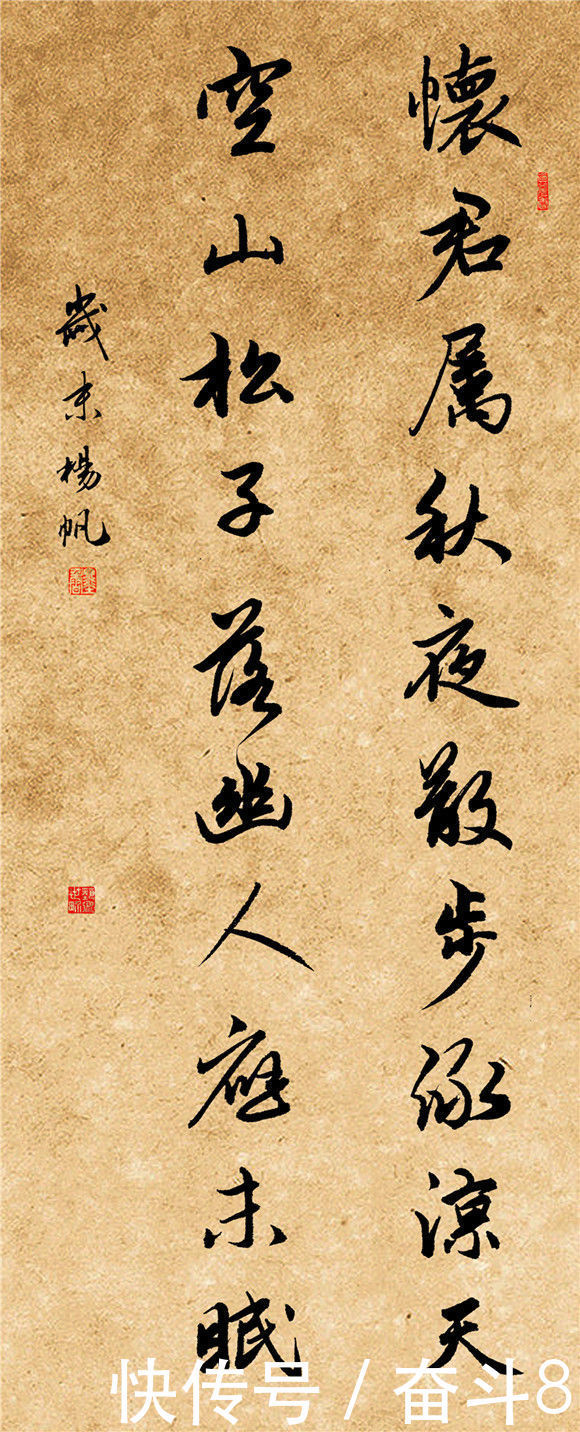 懷君属秋夜散步詠涼天
空山松子落幽人應未眠
歲末楊帆
快传号 / 奋斗8